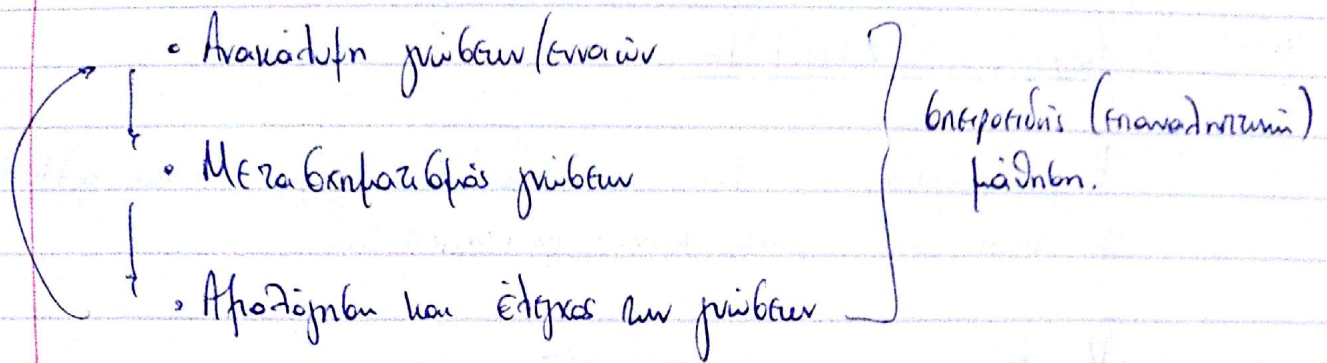 • Ανακάλυψη γνώσεων/εννοιών
• Μετασχηματισμός γνώσεων
• Αξιολόγηση και έλεγχος των γνώσεων
σπειροειδής (επαναληπτική)
μάθηση.